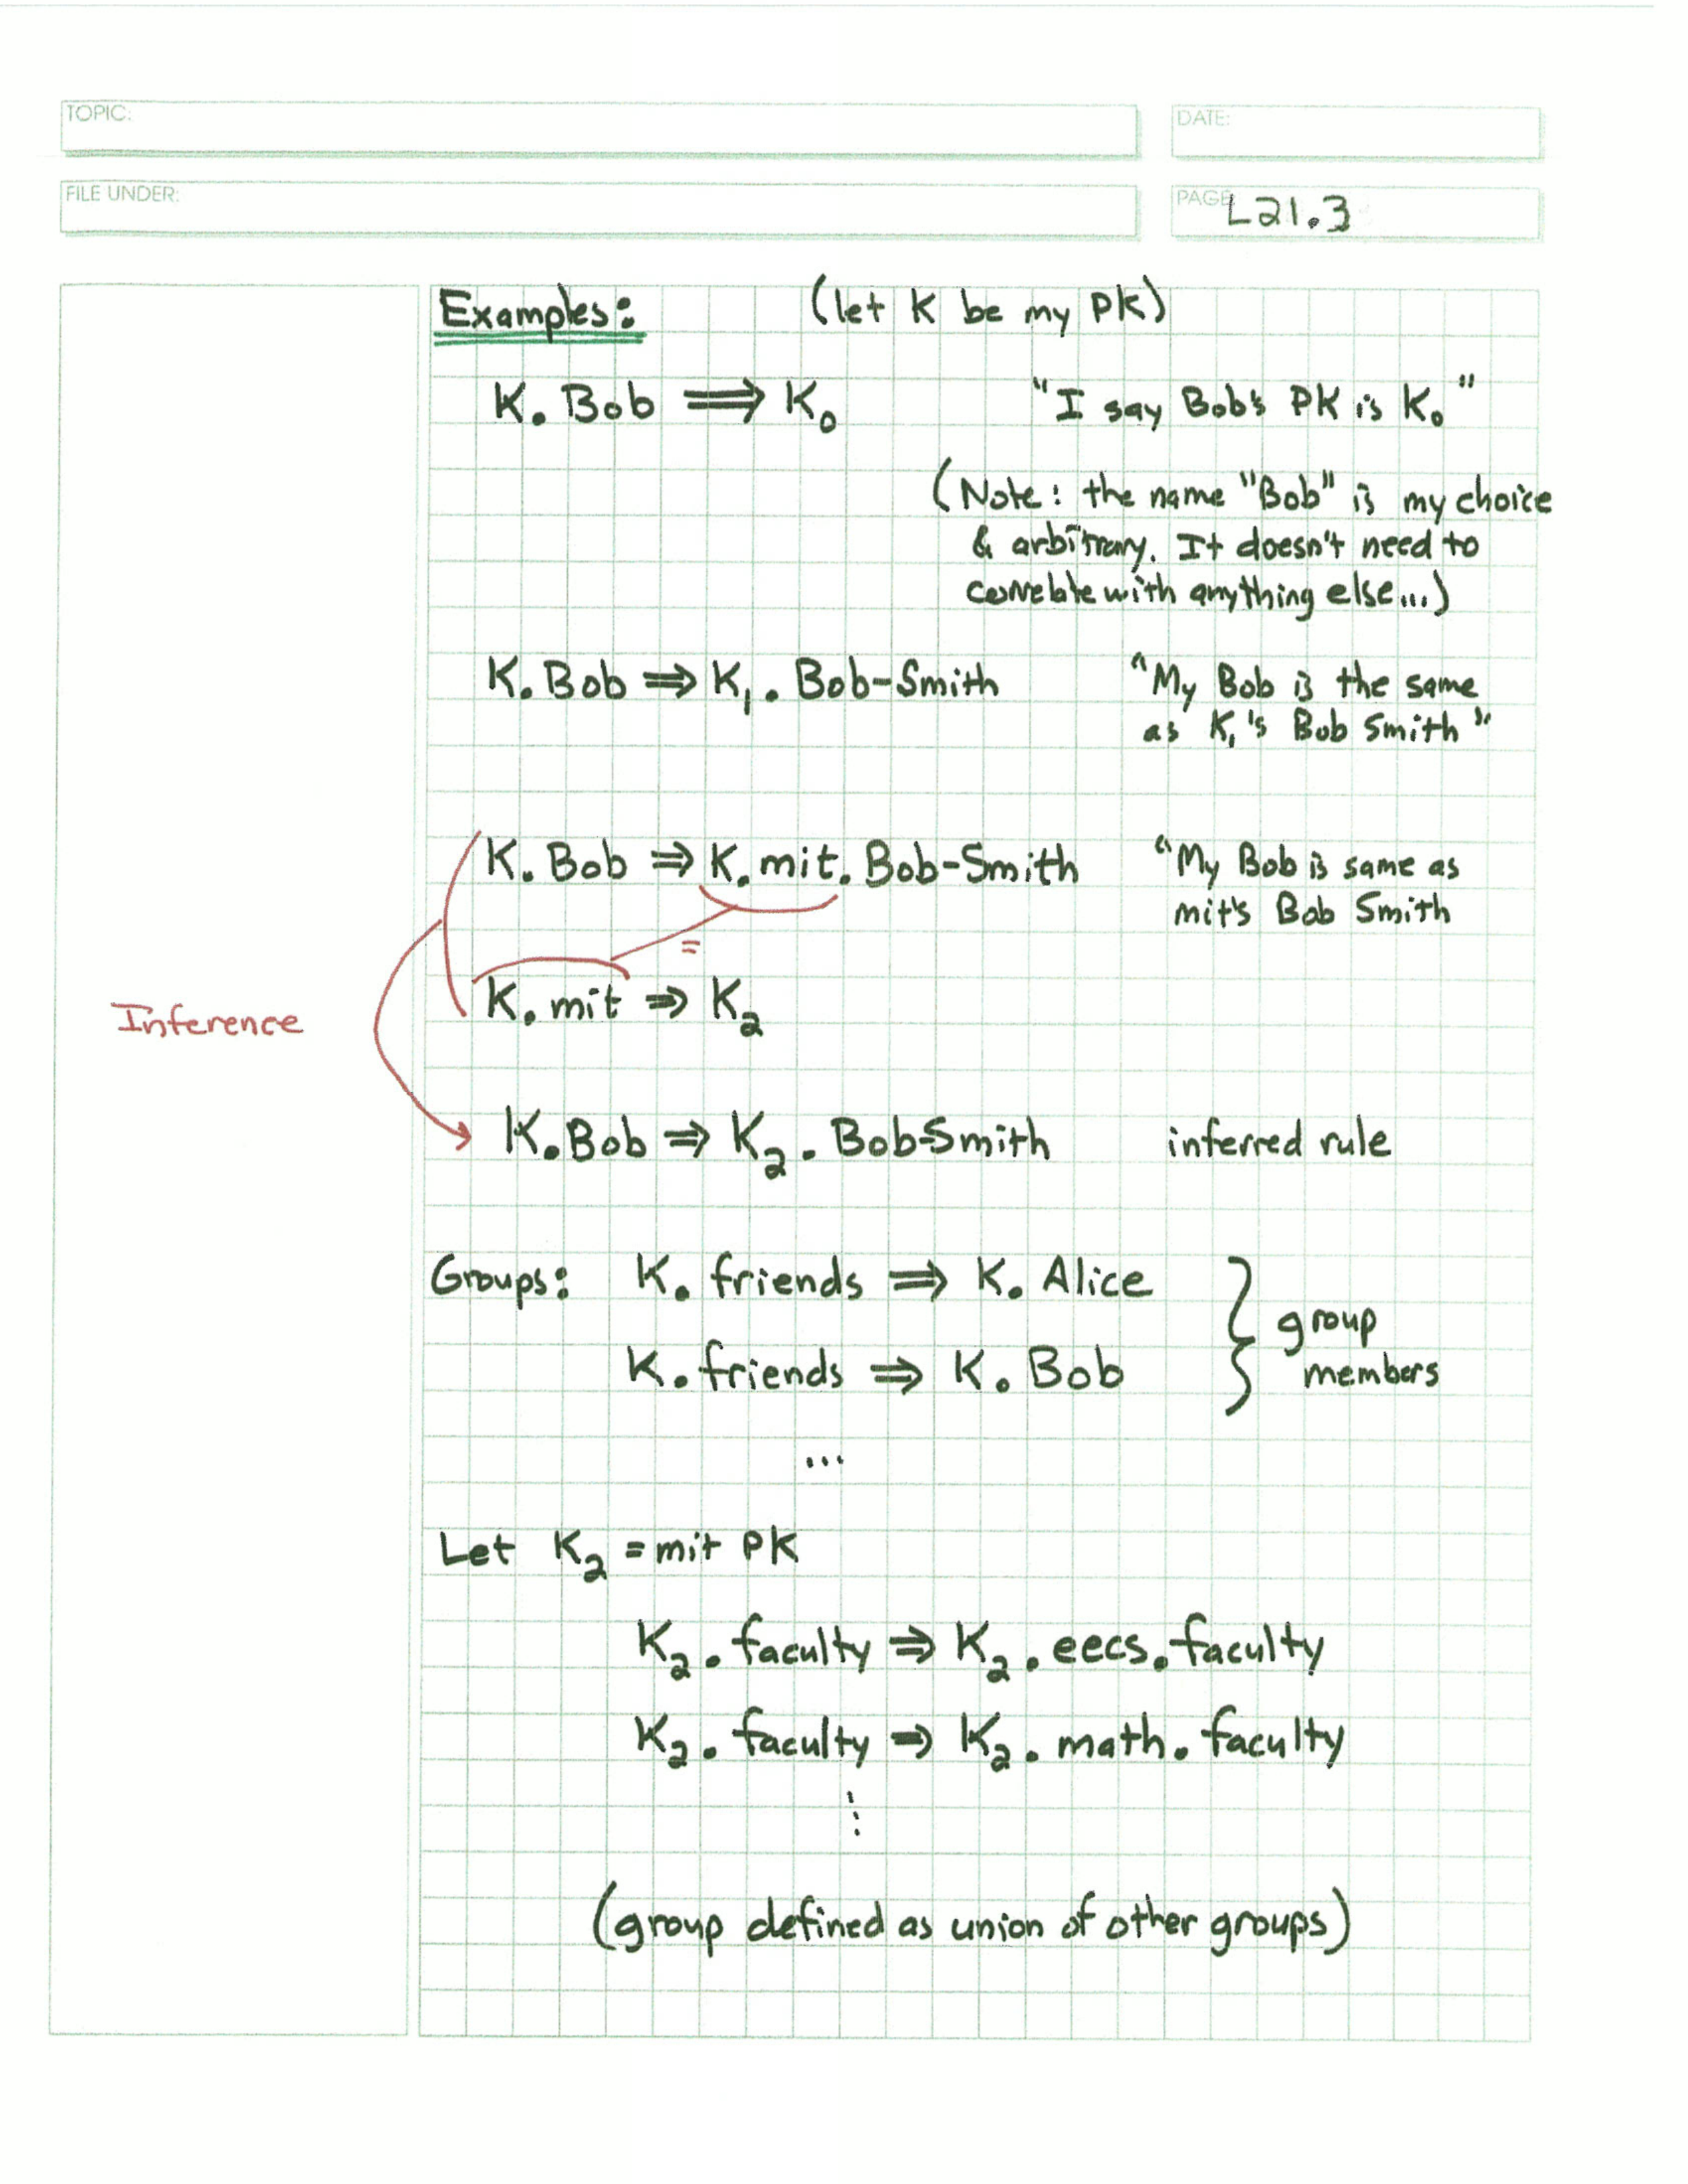 TOPIC:
DATE:
FILE UNDER:
PAGE L21.3
Examples: (let K be my PK)
K. Bob ⟹ K₀ "I say Bob's PK is K₀"
(Note: the name "Bob" is my choice
& arbitrary. It doesn't need to
correlate with anything else...)
K. Bob ⟹ K₁. Bob-Smith "My Bob is the same
as K₁'s Bob Smith"
K. Bob ⟹ K. mit. Bob-Smith "My Bob is same as
mit's Bob Smith
=
K. mit ⟹ K₂
Inference
K. Bob ⟹ K₂. Bob-Smith inferred rule
Groups: K. friends ⟹ K. Alice
K. friends ⟹ K. Bob
} group
members
...
Let K₂ = mit PK
K₂. faculty ⟹ K₂. eecs. faculty
K₂. faculty ⟹ K₂. math. faculty
⋮
(group defined as union of other groups)